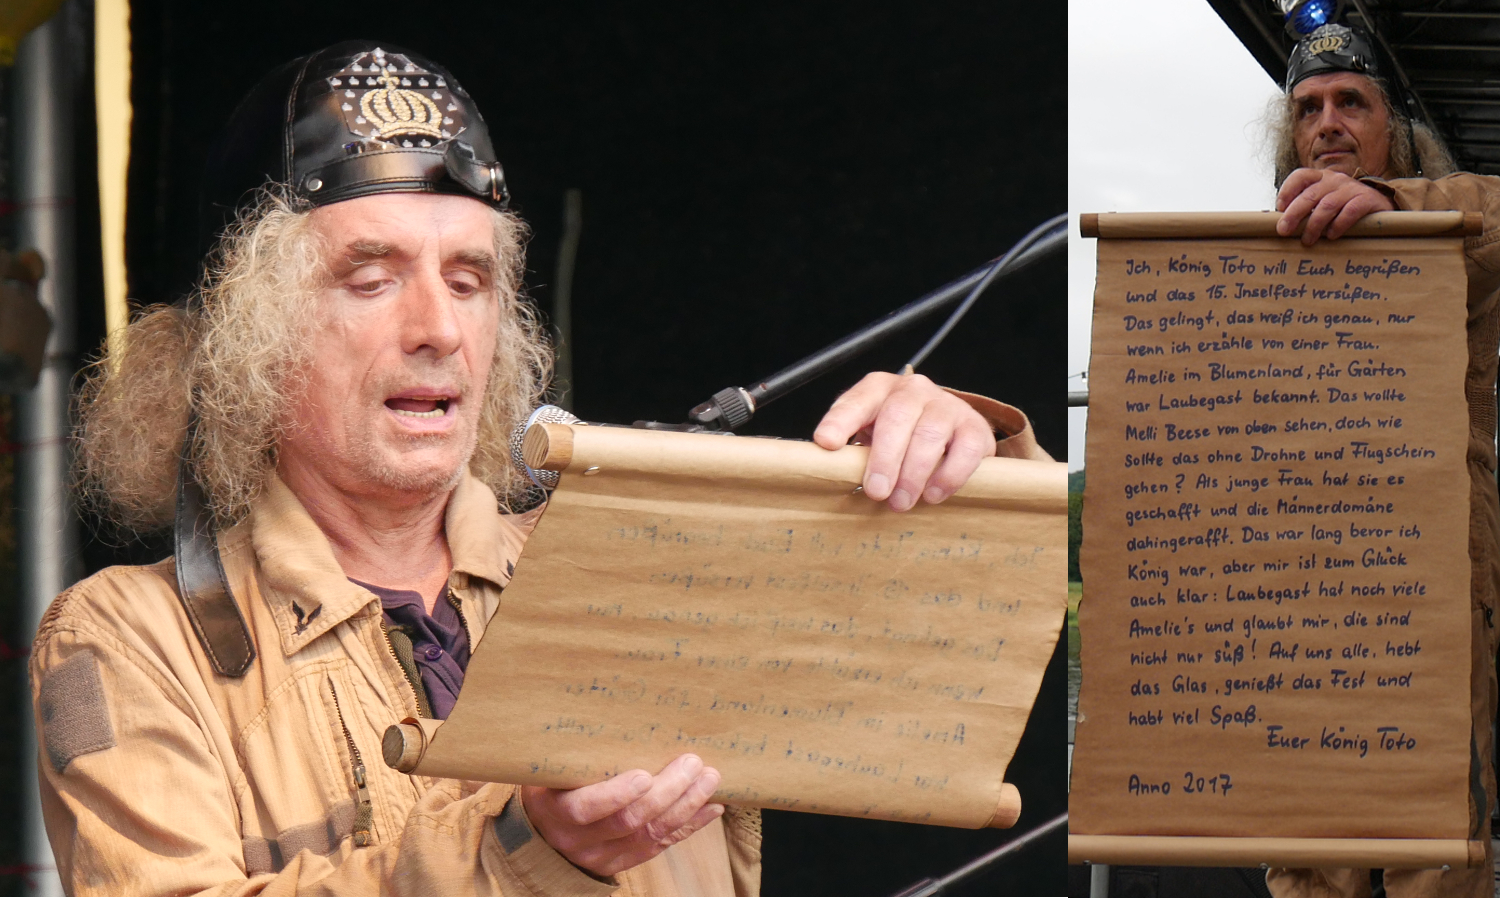 Ich, König Toto will Euch begrüßen
und das 15. Inselfest versüßen.
Das gelingt, das weiß ich genau, nur
wenn ich erzähle von einer Frau.
Amelie im Blumenland, für Gärten
war Laubegast bekannt. Das wollte
Melli Beese von oben sehen, doch wie
sollte das ohne Drohne und Flugschein
gehen? Als junge Frau hat sie es
geschafft und die Männerdomäne
dahingerafft. Das war lang bevor ich
König war, aber mir ist zum Glück
auch klar: Laubegast hat noch viele
Amelie's und glaubt mir, die sind
nicht nur süß! Auf uns alle, hebt
das Glas, genießt das Fest und
habt viel Spaß.
Euer König Toto
Anno 2017